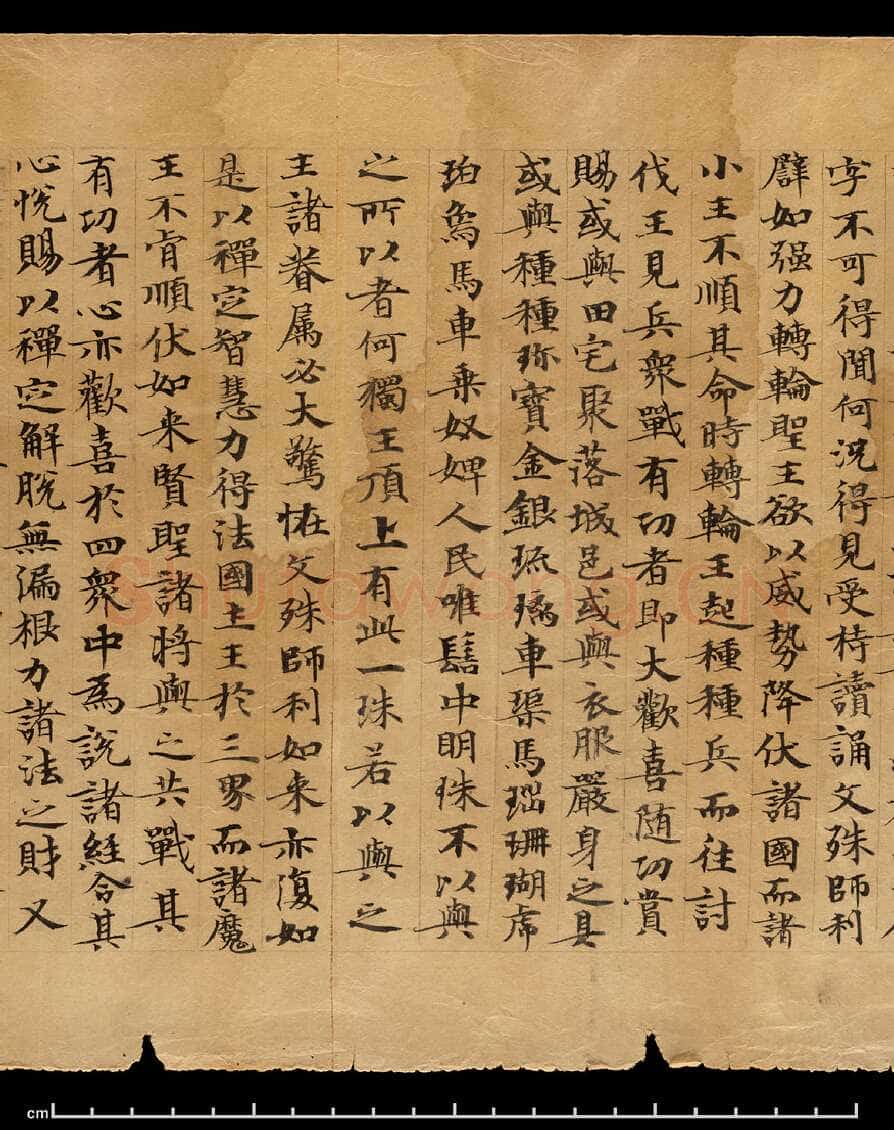 字不可得聞何況得見受持讀誦文殊師利
譬如强力轉輪聖王欲以威勢降伏諸國而諸
小王不順其命時轉輪王起種種兵而往討
伐王見兵衆戰有功者即大歡喜随功賞
賜或與田宅聚落城邑或與衣服嚴身之具
或與種種珎寶金銀琉璃車璖馬瑙珊瑚虎
珀烏馬車乗奴婢人民唯髻中明珠不以與
之所以者何獨王頂上有此一珠若以與之
王諸眷属必大驚恠文殊師利如来亦復如
是以禪定智慧力得法國土王於三界而諸魔
王不肯順伏如来賢聖諸將與之共戰其
有功者心亦歡喜於四衆中為說諸經令其
心悅賜以禪定解脫無漏根力諸法之財又
cm